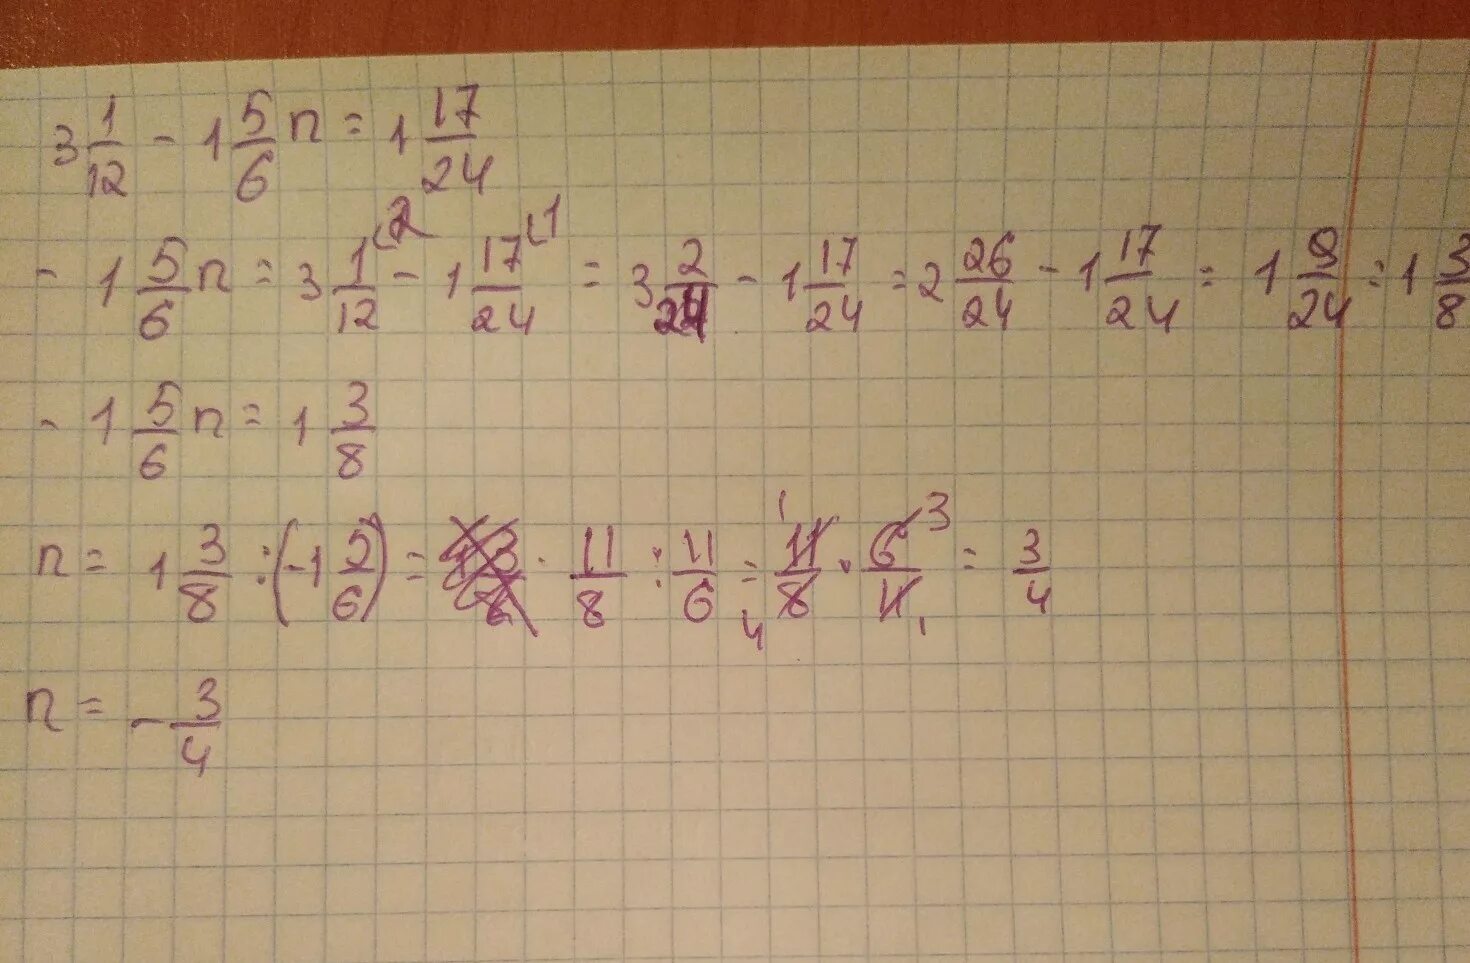 3 1/12 - 1 5/6 n = 1 17/24
- 1 5/6 n = 3 1/12 (2 - 1 17/24 (1 = 3 2/24 - 1 17/24 = 2 26/24 - 1 17/24 = 1 9/24 = 1 3/8
- 1 5/6 n = 1 3/8
n = 1 3/8 : (-1 5/6) = - 11/8 : 11/6 = 11/8 · 6/11 = 3/4
n = - 3/4